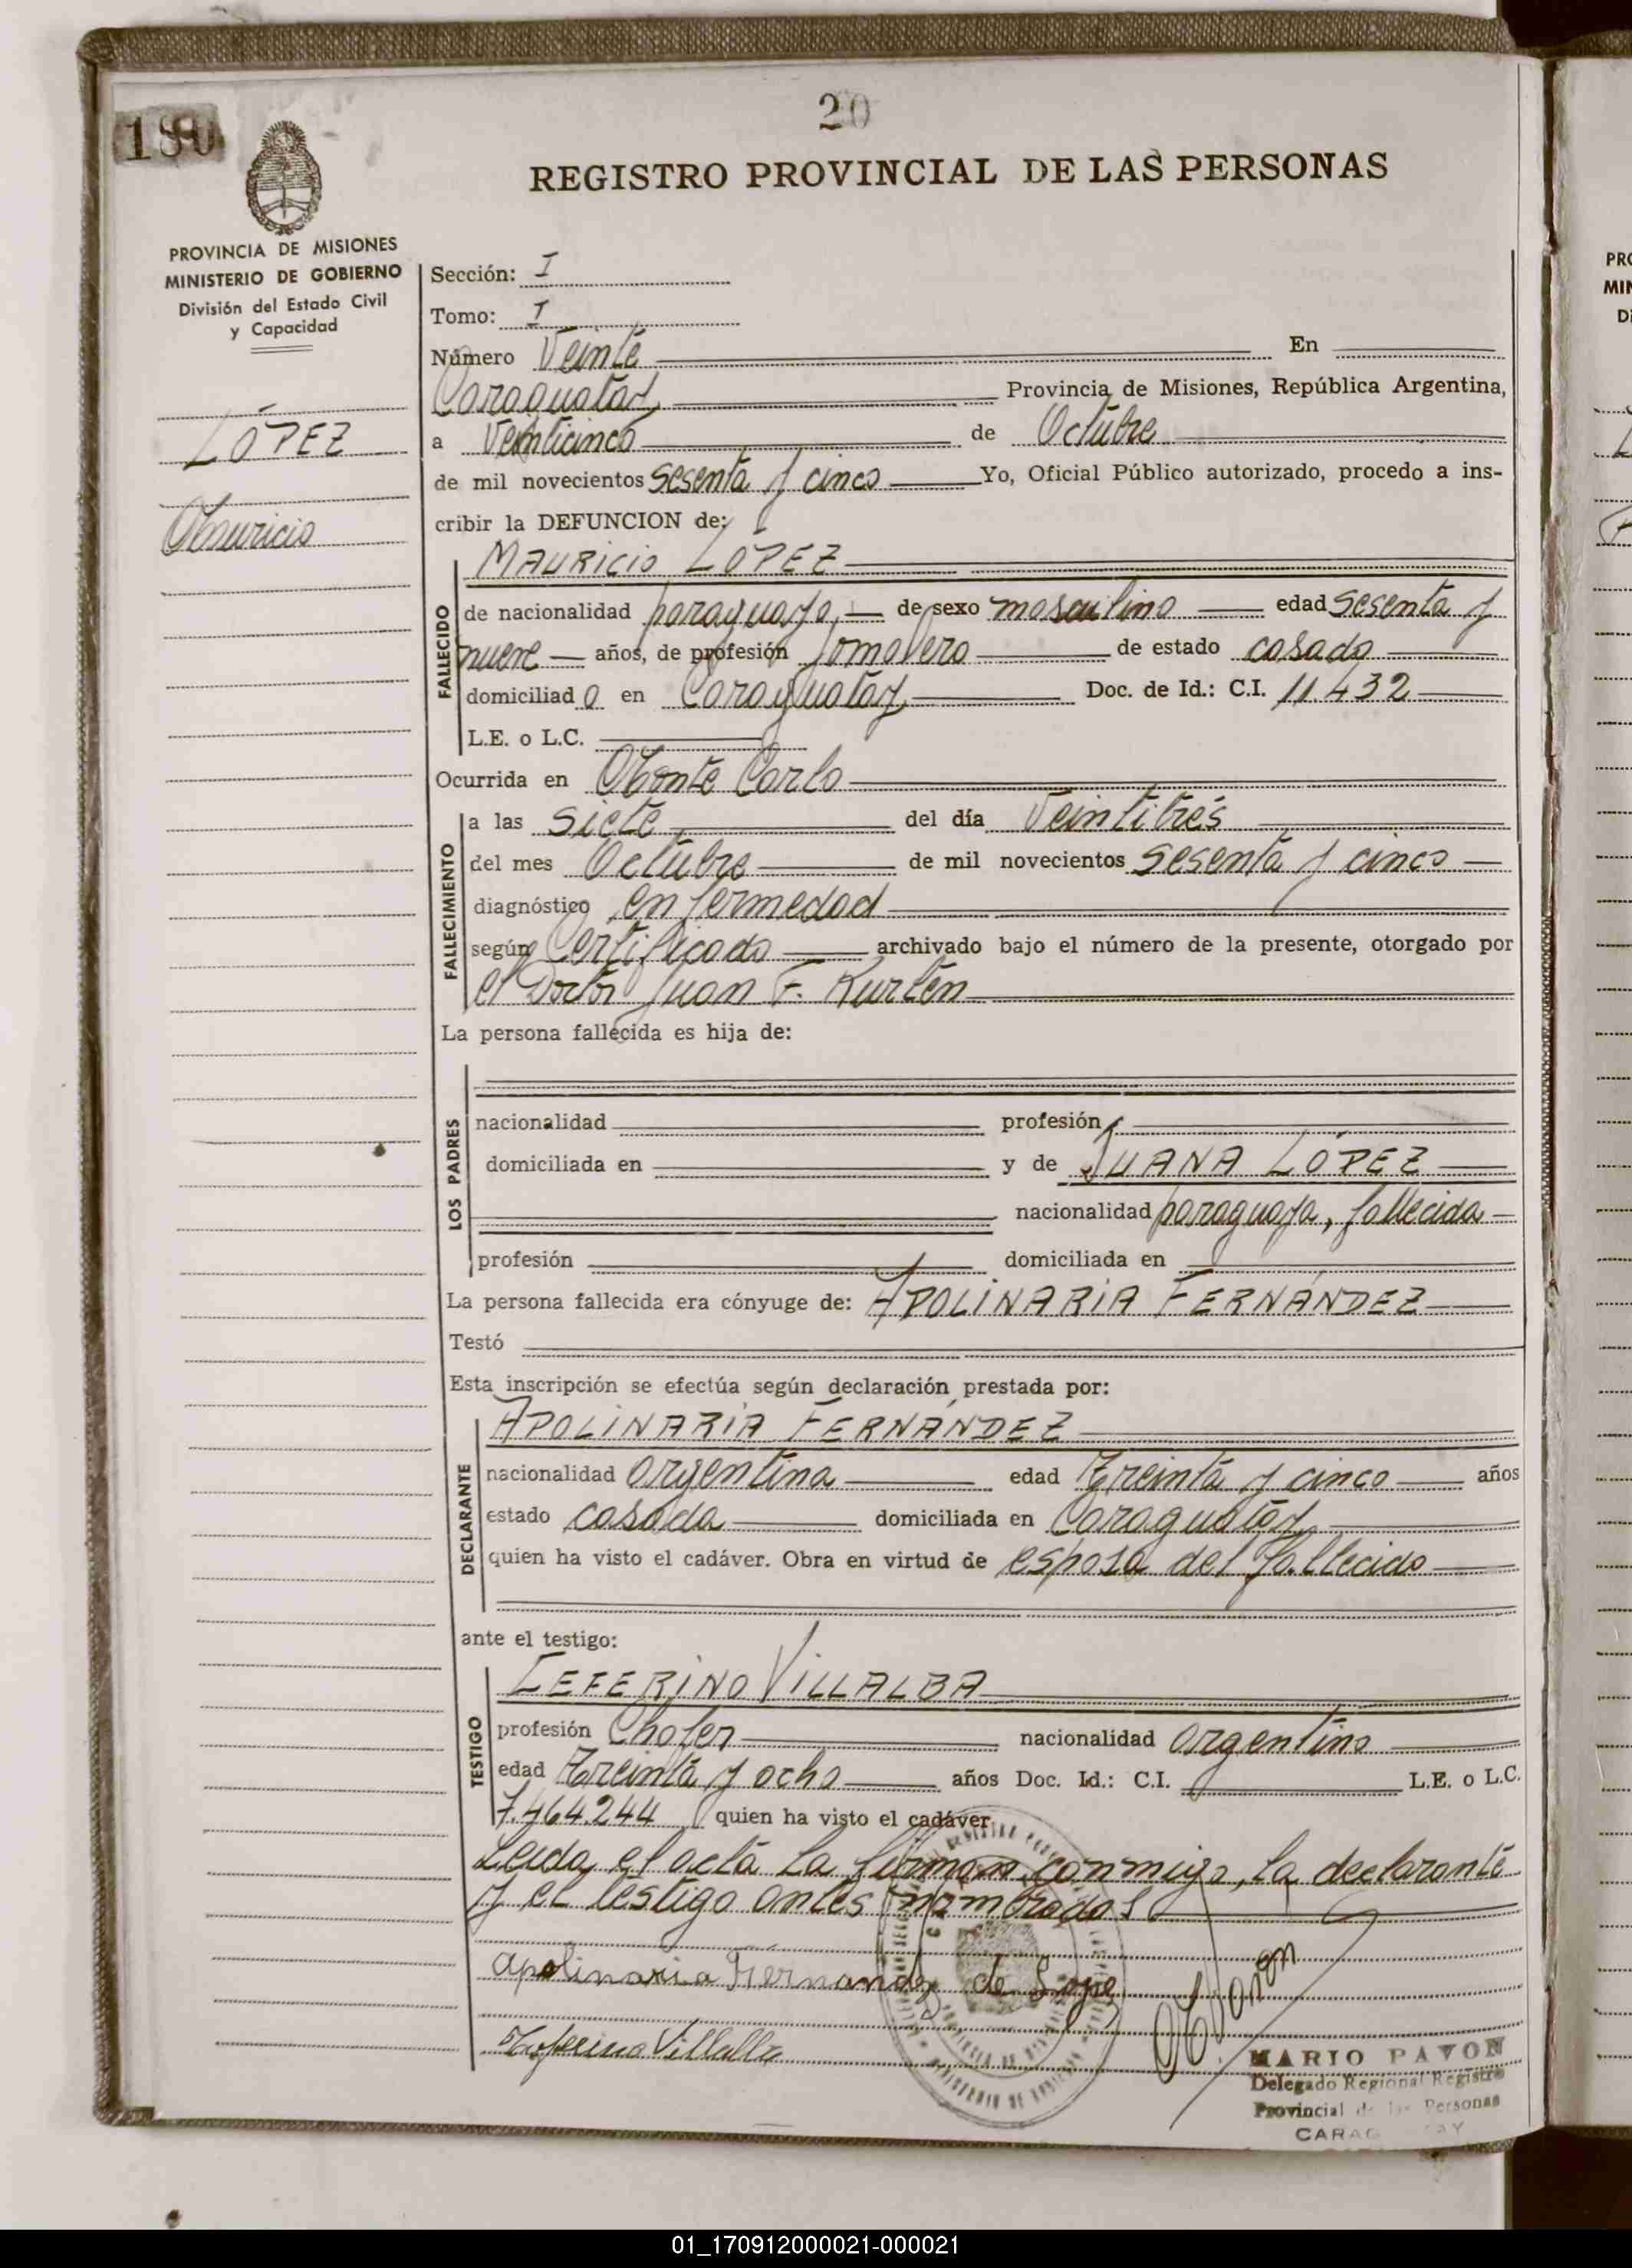 20
180
REGISTRO PROVINCIAL DE LAS PERSONAS
PROVINCIA DE MISIONES
MINISTERIO DE GOBIERNO
División del Estado Civil
y Capacidad
LÓPEZ
Mauricio
Sección: I
Tomo: I
Número Veinte En
Caraguatay Provincia de Misiones, República Argentina,
a Veinticinco de Octubre
de mil novecientos Sesenta y cinco Yo, Oficial Público autorizado, procedo a ins-
cribir la DEFUNCION de:
FALLECIDO
MAURICIO LÓPEZ
de nacionalidad paraguayo, de sexo masculino edad Sesenta y
nueve años, de profesión jornalero de estado casado
domiciliad o en Caraguatay Doc. de Id.: C.I. 11.432
L.E. o L.C.
Ocurrida en Monte Carlo
FALLECIMIENTO
a las Siete, del día Veintitrés
del mes Octubre de mil novecientos Sesenta y cinco
diagnóstico enfermedad
según Certificado archivado bajo el número de la presente, otorgado por
el Doctor Juan F. Kurtén
La persona fallecida es hija de:
LOS PADRES
nacionalidad profesión
domiciliada en y de JUANA LÓPEZ
nacionalidad paraguaya, fallecida
profesión domiciliada en
La persona fallecida era cónyuge de: APOLINARIA FERNÁNDEZ
Testó
Esta inscripción se efectúa según declaración prestada por:
DECLARANTE
APOLINARIA FERNÁNDEZ
nacionalidad argentina edad Treinta y cinco años
estado casada domiciliada en Caraguatay
quien ha visto el cadáver. Obra en virtud de esposa del fallecido
ante el testigo:
TESTIGO
CEFERINO VILLALBA
profesión Chofer nacionalidad argentino
edad Treinta y ocho años Doc. Id.: C.I. L.E. o L.C.
7.464.244 quien ha visto el cadáver
Leida el acta la firman conmigo, la declarante
y el testigo antes nombrados
Apolinaria Fernandez de Lopez
Ceferino Villalba
MARIO PAVON
Delegado Regional Registro
Provincial de las Personas
01_170912000021-000021